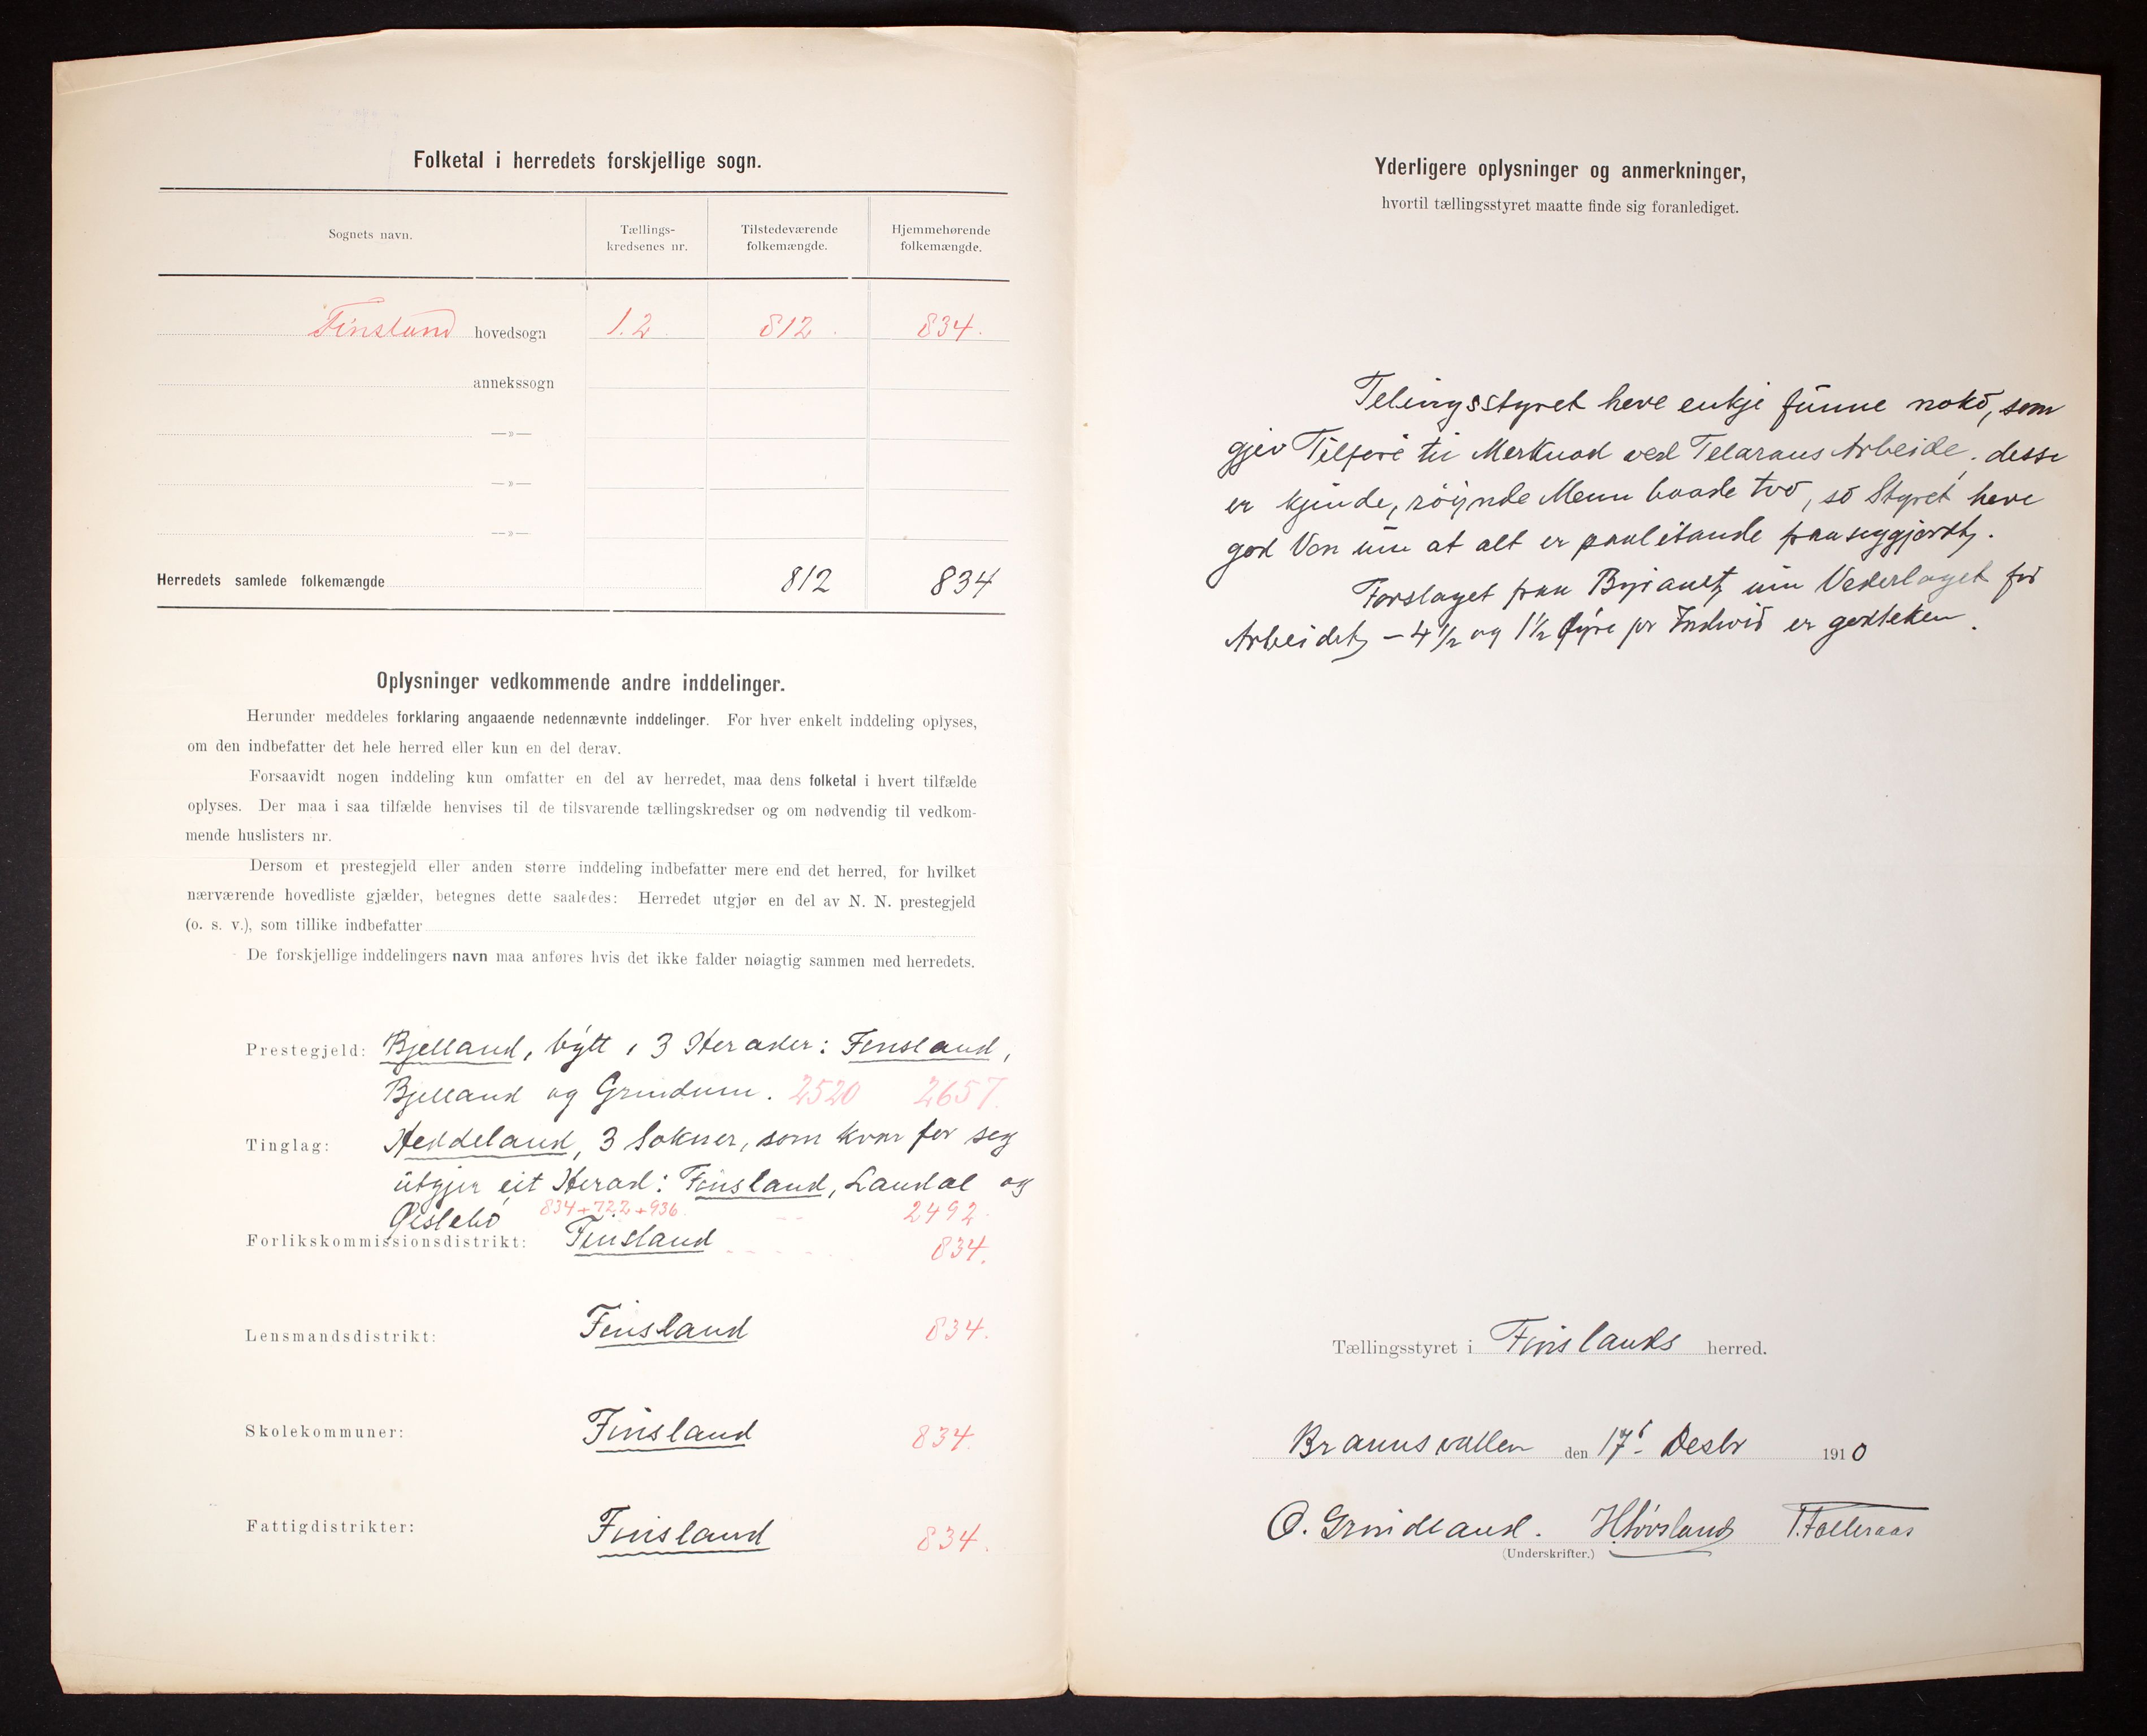 Folketal i herredets forskjellige sogn.
Sognets navn.
Tællings-
kredsenes nr.
Tilstedeværende
folkemængde.
Hjemmehørende
folkemængde.
Finsland hovedsogn 1.2 812. 834.
annekssogn
—»—
—»—
—»—
Herredets samlede folkemængde 812 834
Oplysninger vedkommende andre inddelinger.
Herunder meddeles forklaring angaaende nedennævnte inddelinger. For hver enkelt inddeling oplyses,
om den indbefatter det hele herred eller kun en del derav.
Forsaavidt nogen inddeling kun omfatter en del av herredet, maa dens folketal i hvert tilfælde
oplyses. Der maa i saa tilfælde henvises til de tilsvarende tællingskredser og om nødvendig til vedkom-
mende huslisters nr.
Dersom et prestegjeld eller anden større inddeling indbefatter mere end det herred, for hvilket
nærværende hovedliste gjælder, betegnes dette saaledes: Herredet utgjør en del av N. N. prestegjeld
(o. s. v.), som tillike indbefatter
De forskjellige inddelingers navn maa anføres hvis det ikke falder nøiagtig sammen med herredets.
Prestegjeld: Bjelland, býtt i 3 Herader: Finsland,
Bjelland og Grindum. 2520 2657.
Tinglag: Heddeland, 3 Sokner, som kvar for seg
utgjer eit Herad: Finsland, Laudal og
Øislebö 834+722+936. 2492.
Forlikskommissionsdistrikt: Finsland 834.
Lensmandsdistrikt: Finsland 834.
Skolekommuner: Finsland 834.
Fattigdistrikter: Finsland 834.
Yderligere oplysninger og anmerkninger,
hvortil tællingsstyret maatte finde sig foranlediget.
Telingsstyret heve enkje funne noko, som
gjev Tilføre til Merknad ved Telarans Arbeide, desse
er kjende, röynde Menn baade tvo, so Styret heve
god Von um at alt er paalitande fraaseggjordt.
Forslaget fraa Byraaet um Vederlaget for
Arbeidet – 4 1/2 og 1 1/2 Øyre pr Individ er godteken.
Tællingsstyret i Finslands herred.
Braunsvallen den 17' Desbr 1910
O. Grindland. H Hövsland T. Falleraas
(Underskrifter.)